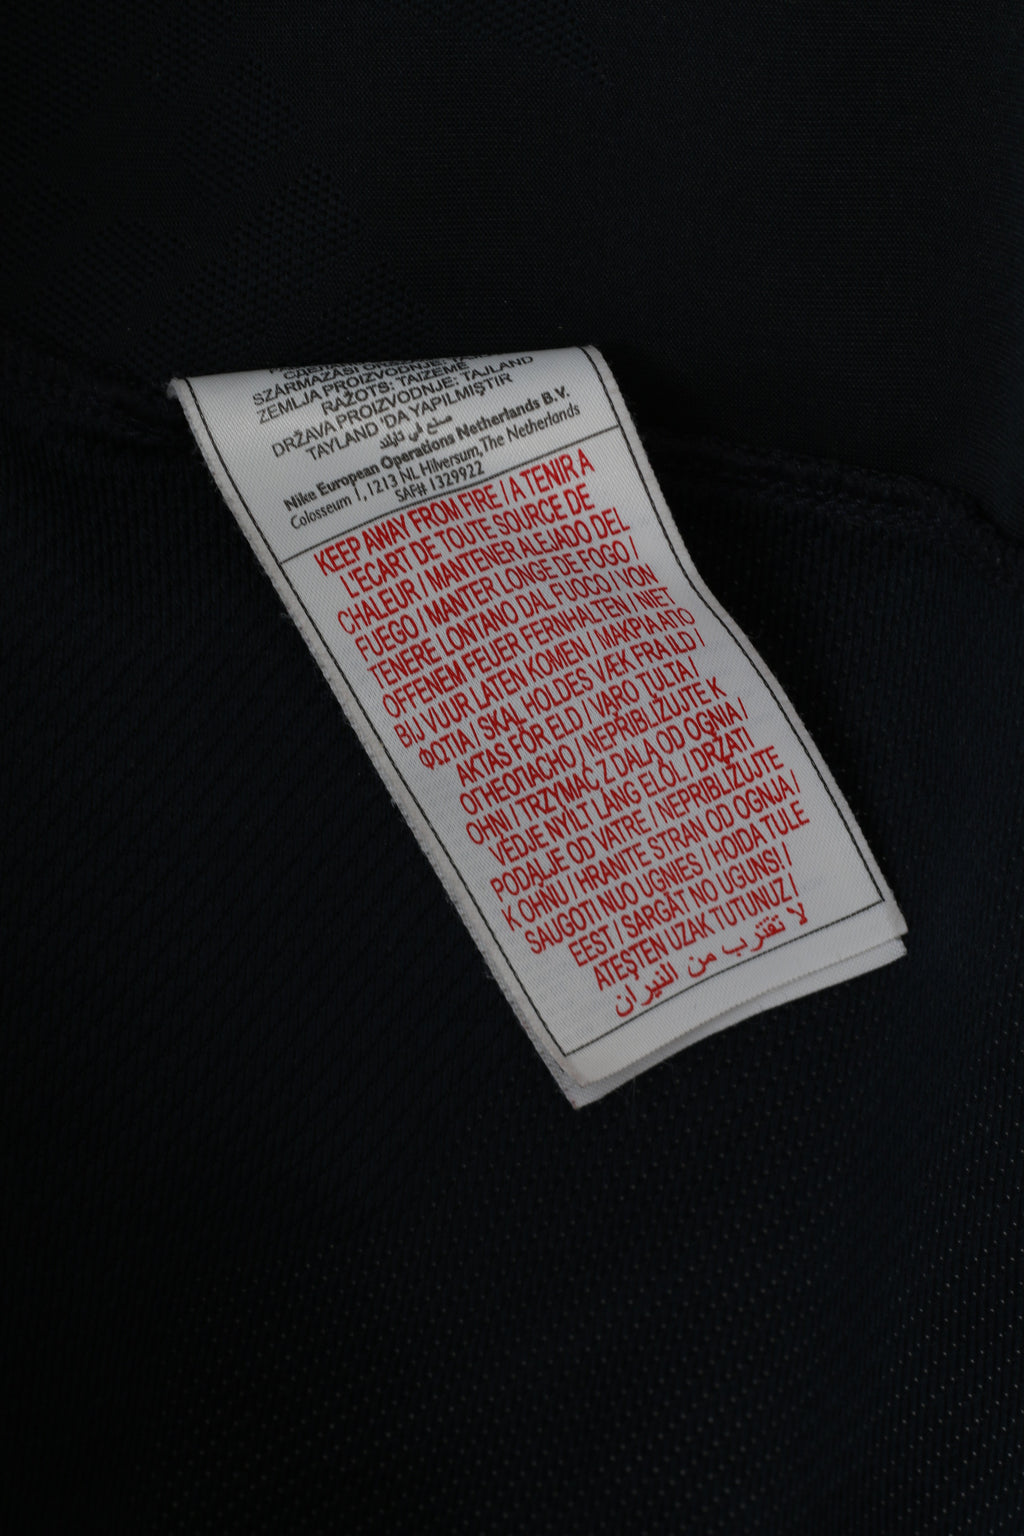 SZÁRMAZÁSI
ZEMLJA PROIZVODNJE: TAJLAND
RAŽOTS: TAIZEMĒ
DRŽAVA PROIZVODNJE: TAJLAND
TAYLAND 'DA YAPILMIŞTIR
صنع في تايلند
Nike European Operations Netherlands B.V.
Colosseum 1, 1213 NL Hilversum, The Netherlands
SAF# 1329922
KEEP AWAY FROM FIRE / A TENIR A
L'ECART DE TOUTE SOURCE DE
CHALEUR / MANTENER ALEJADO DEL
FUEGO / MANTER LONGE DE FOGO /
TENERE LONTANO DAL FUOCO / VON
OFFENEM FEUER FERNHALTEN / NIET
BIJ VUUR LATEN KOMEN / ΜΑΚΡΙΑ ΑΠΟ
ΦΩΤΙΑ / SKAL HOLDES VÆK FRA ILD /
AKTAS FÖR ELD / VARO TULTA /
ОГНЕОПАСНО / NEPŘIBLIŽUJTE K
OHNI / TRZYMAĆ Z DALA OD OGNIA /
VÉDJE NYÍLT LÁNG ELŐL / DRŽATI
PODALJE OD VATRE / NEPRIBLIŽUJTE
K OHŇU / HRANITE STRAN OD OGNJA /
SAUGOTI NUO UGNIES / HOIDA TULE
EEST / SARGĀT NO UGUNS! /
ATEŞTEN UZAK TUTUNUZ /
لا تقترب من النيران